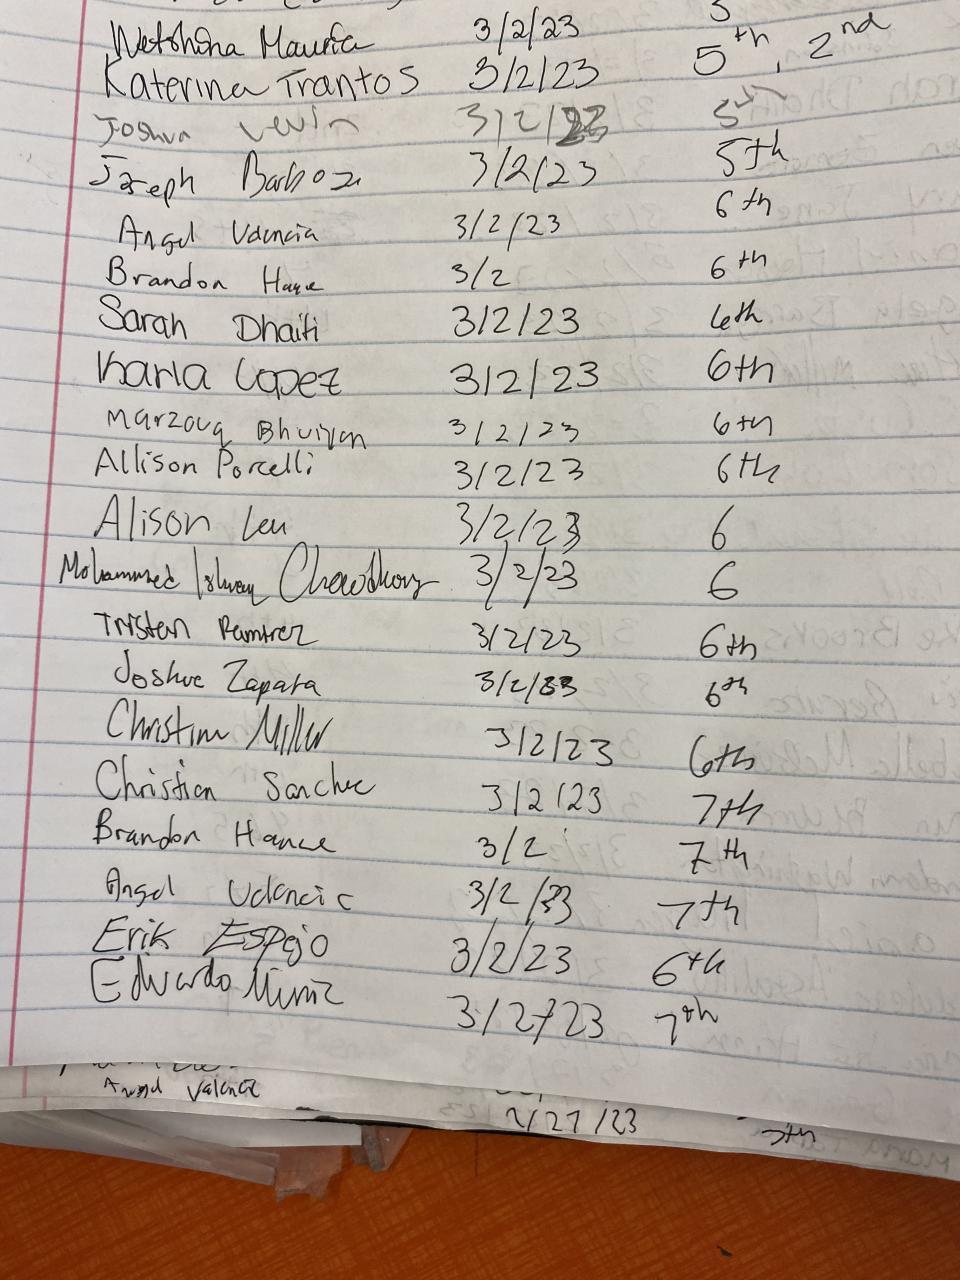 Mauria 3/2/23 5
Katerina Trantos 3/2/23 5th, 2nd
Joshua Levin 3/2/23 5th
Joseph Barboza 3/2/23 5th
Angel Valencia 3/2/23 6th
Brandon 3/2 6th
Sarah Dhaiti 3/2/23 6th
Karla Lopez 3/2/23 6th
Marzouq Bhuiyan 3/2/23 6th
Allison Porcelli 3/2/23 6th
Alison Leu 3/2/23 6
Mohammed Chowdhury 3/2/23 6
Tristan Ramirez 3/2/23 6th
Joshue Zapata 3/2/23 6th
Christina Miller 3/2/23 6th
Christian Sanchez 3/2/23 7th
Brandon 3/2 7th
Angel Valencia 3/2/23 7th
Erik Espejo 3/2/23 6th
Edwardo Muniz 3/2/23 7th
Angel Valencia 2/27/23 7th